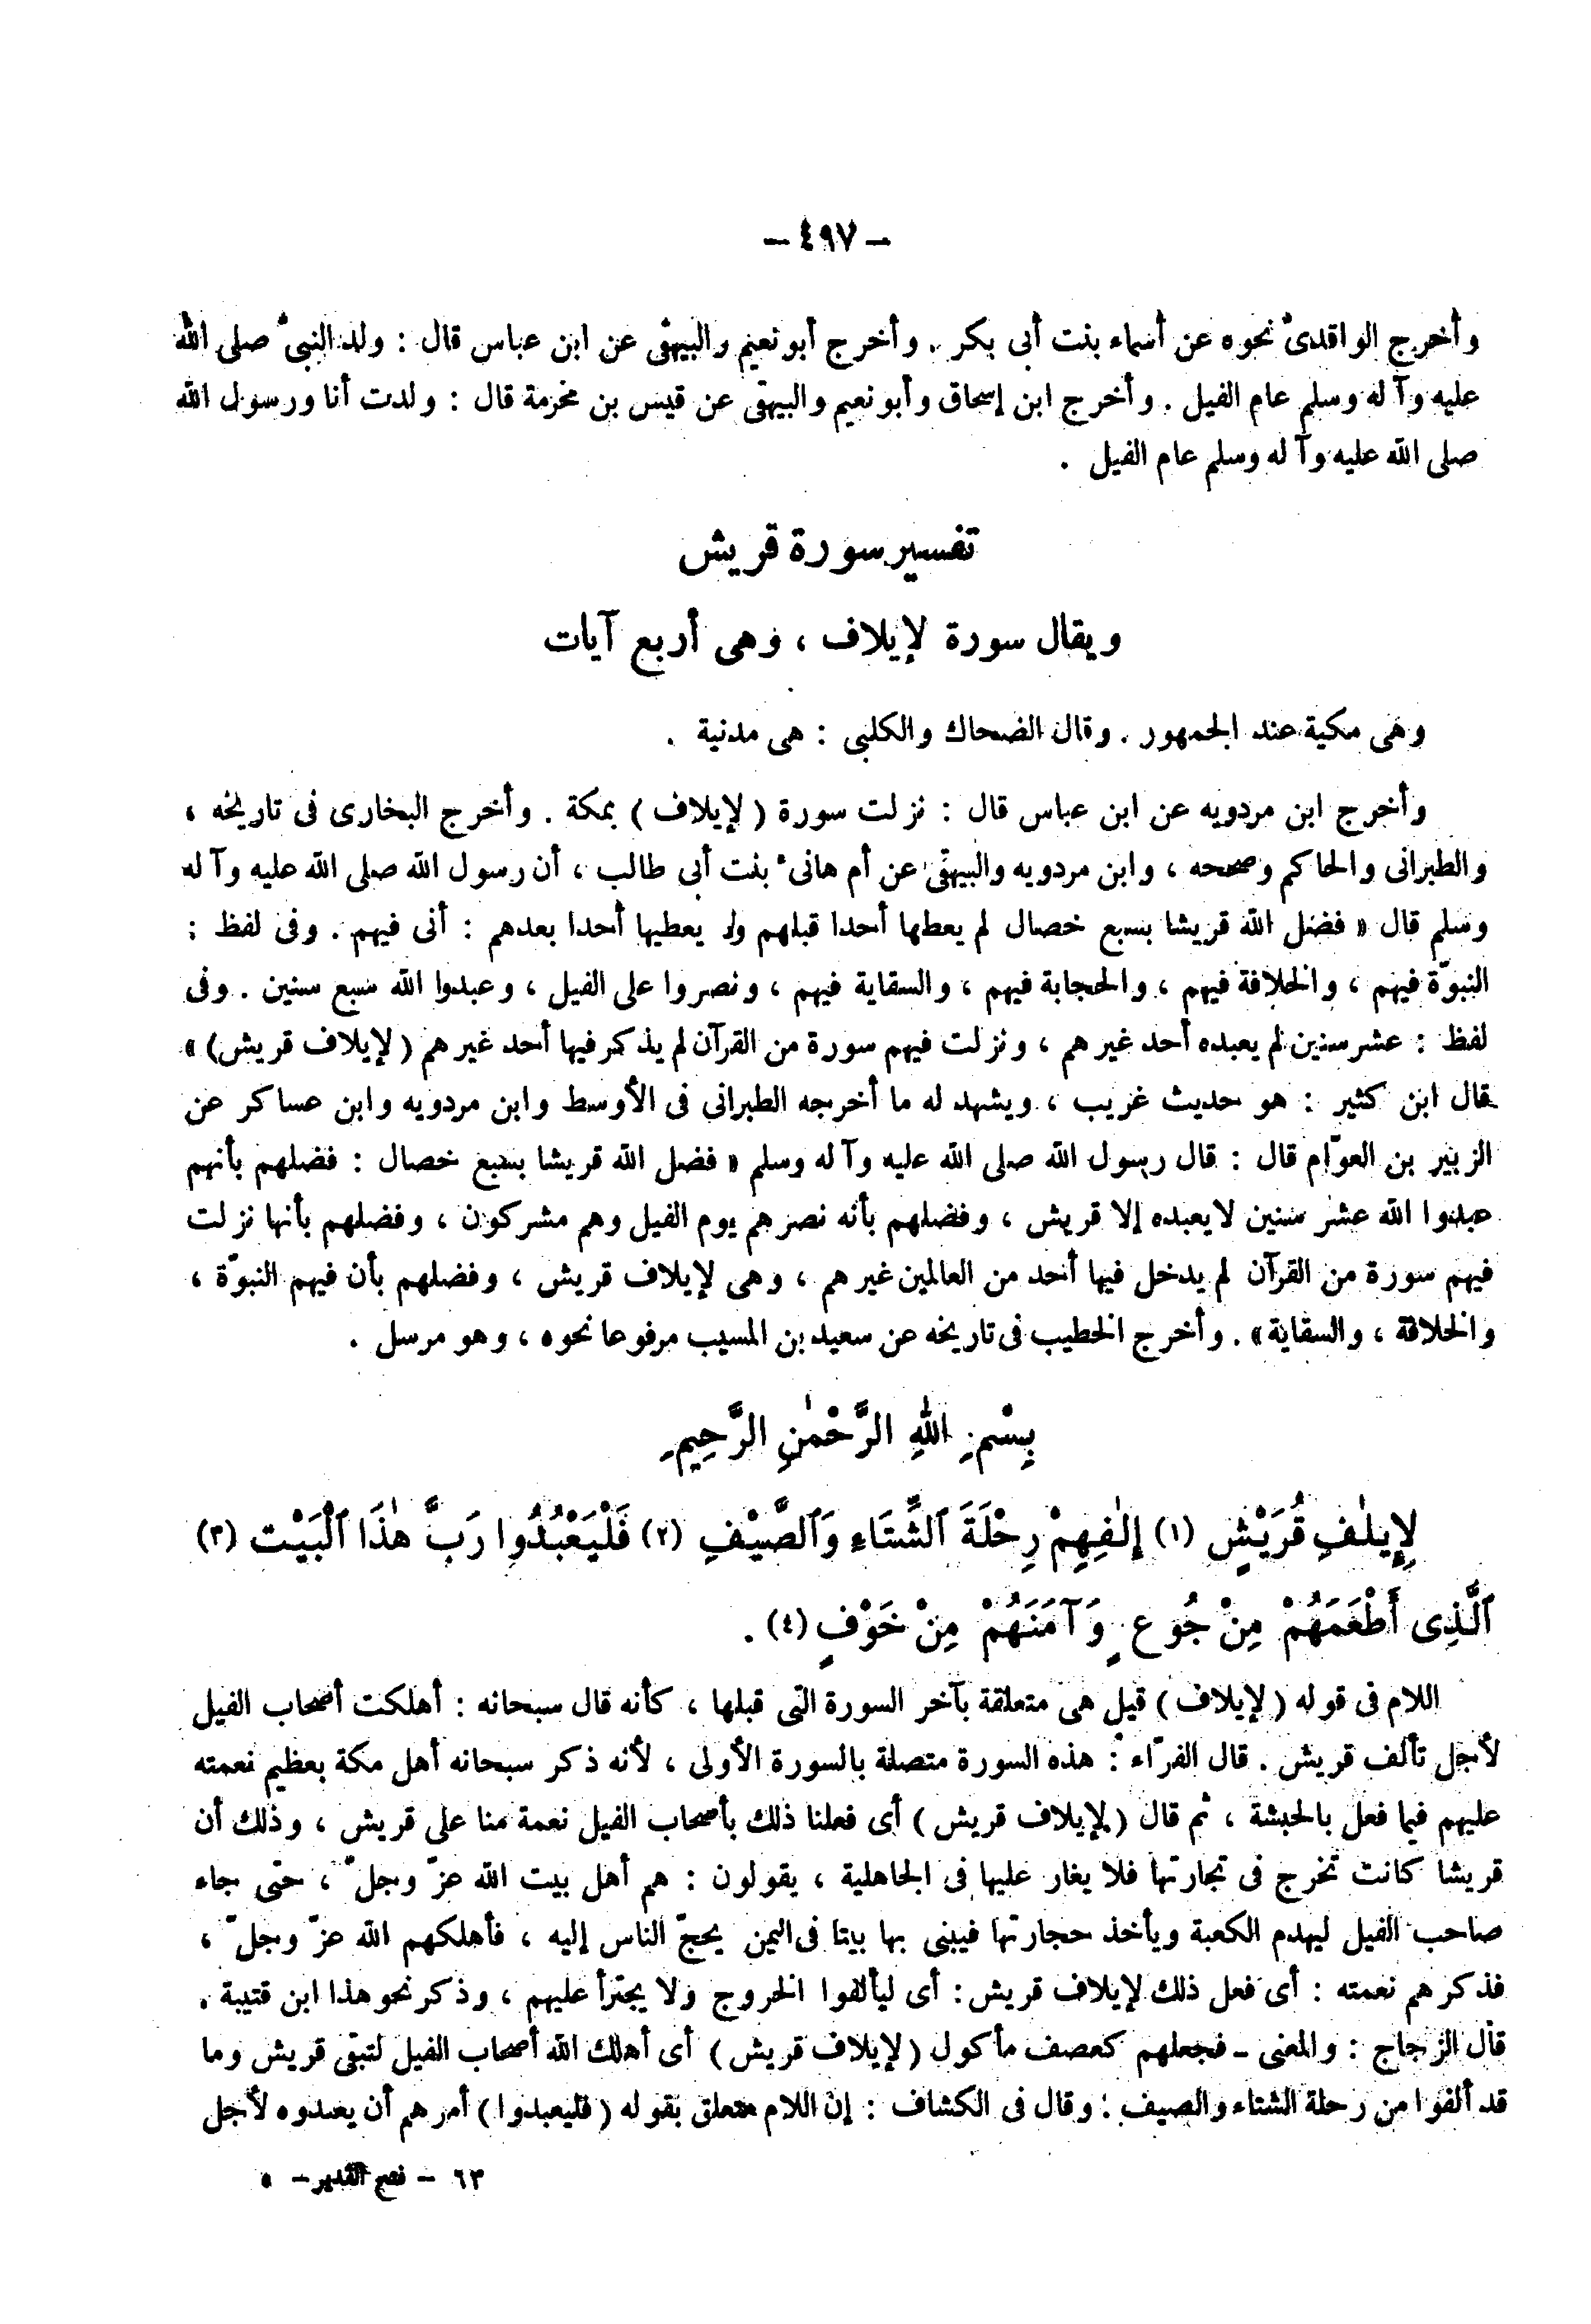 — ٤٩٧ —
وأخرج الواقدىّ نحوه عن أسماء بنت أبى بكر . وأخرج أبو نعيم والبيهقى عن ابن عباس قال : ولد النبىّ صلى الله
عليه وآله وسلم عام الفيل . وأخرج ابن إسحاق وأبو نعيم والبيهقى عن قيس بن مخرمة قال : ولدت أنا ورسول الله
صلى الله عليه وآله وسلم عام الفيل .
تفسير سورة قريش
ويقال سورة لإيلاف ، وهى أربع آيات
وهى مكية عند الجمهور . وقال الضحاك والكلبى : هى مدنية .
وأخرج ابن مردويه عن ابن عباس قال : نزلت سورة ( لإيلاف ) بمكة . وأخرج البخارى فى تاريخه ،
والطبرانى والحاكم وصححه ، وابن مردويه والبيهقى عن أم هانىء بنت أبى طالب ، أن رسول الله صلى الله عليه وآله
وسلم قال « فضل الله قريشا بسبع خصال لم يعطها أحدا قبلهم ولا يعطيها أحدا بعدهم : أنى فيهم . وفى لفظ :
النبوّة فيهم ، والخلافة فيهم ، والحجابة فيهم ، والسقاية فيهم ، ونصروا على الفيل ، وعبدوا الله سبع سنين . وفى
لفظ : عشر سنين لم يعبده أحد غيرهم ، ونزلت فيهم سورة من القرآن لم يذكر فيها أحد غيرهم ( لإيلاف قريش ) »
قال ابن كثير : هو حديث غريب ، ويشهد له ما أخرجه الطبرانى فى الأوسط وابن مردويه وابن عساكر عن
الزبير بن العوّام قال : قال رسول الله صلى الله عليه وآله وسلم « فضل الله قريشا بسبع خصال : فضلهم بأنهم
عبدوا الله عشر سنين لا يعبده إلا قريش ، وفضلهم بأنه نصرهم يوم الفيل وهم مشركون ، وفضلهم بأنها نزلت
فيهم سورة من القرآن لم يدخل فيها أحد من العالمين غيرهم ، وهى لإيلاف قريش ، وفضلهم بأن فيهم النبوّة ،
والخلافة ، والسقاية » . وأخرج الخطيب فى تاريخه عن سعيد بن المسيب مرفوعا نحوه ، وهو مرسل .
بِسْمِ اللهِ الرَّحْمٰنِ الرَّحِيمِ
لِإِيلٰفِ قُرَيْشٍ (١) إِلٰفِهِمْ رِحْلَةَ ٱلشِّتَاءِ وَٱلصَّيْفِ (٢) فَلْيَعْبُدُوا رَبَّ هٰذَا ٱلْبَيْتِ (٣)
ٱلَّذِى أَطْعَمَهُمْ مِنْ جُوعٍ وَآمَنَهُمْ مِنْ خَوْفٍ (٤) .
اللام فى قوله ( لإيلاف ) قيل هى متعلقة بآخر السورة التى قبلها ، كأنه قال سبحانه : أهلكت أصحاب الفيل
لأجل تألف قريش . قال الفرّاء : هذه السورة متصلة بالسورة الأولى ، لأنه ذكر سبحانه أهل مكة بعظيم نعمته
عليهم فيما فعل بالحبشة ، ثم قال ( لإيلاف قريش ) أى فعلنا ذلك بأصحاب الفيل نعمة منا على قريش ، وذلك أن
قريشا كانت تخرج فى تجارتها فلا يغار عليها فى الجاهلية ، يقولون : هم أهل بيت الله عزّ وجلّ ، حتى جاء
صاحب الفيل ليهدم الكعبة ويأخذ حجارتها فيبنى بها بيتا فى اليمن يحجّ الناس إليه ، فأهلكهم الله عزّ وجلّ ،
فذكرهم نعمته : أى فعل ذلك لإيلاف قريش : أى ليألفوا الخروج ولا يجترأ عليهم ، وذكر نحو هذا ابن قتيبة .
قال الزجاج : والمعنى ـ فجعلهم كعصف مأكول ( لإيلاف قريش ) أى أهلك الله أصحاب الفيل لتبقى قريش وما
قد ألفوا من رحلة الشتاء والصيف . وقال فى الكشاف : إن اللام متعلق بقوله ( فليعبدوا ) أمرهم أن يعبدوه لأجل
٦٣ — فتح القدير — ٥